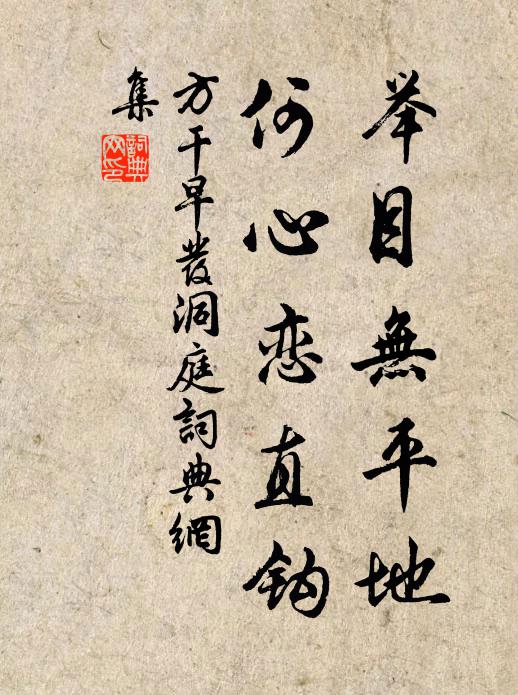 举目無平地
何心恋直钩
方干早發洞庭詞典網
集
詞典
网印